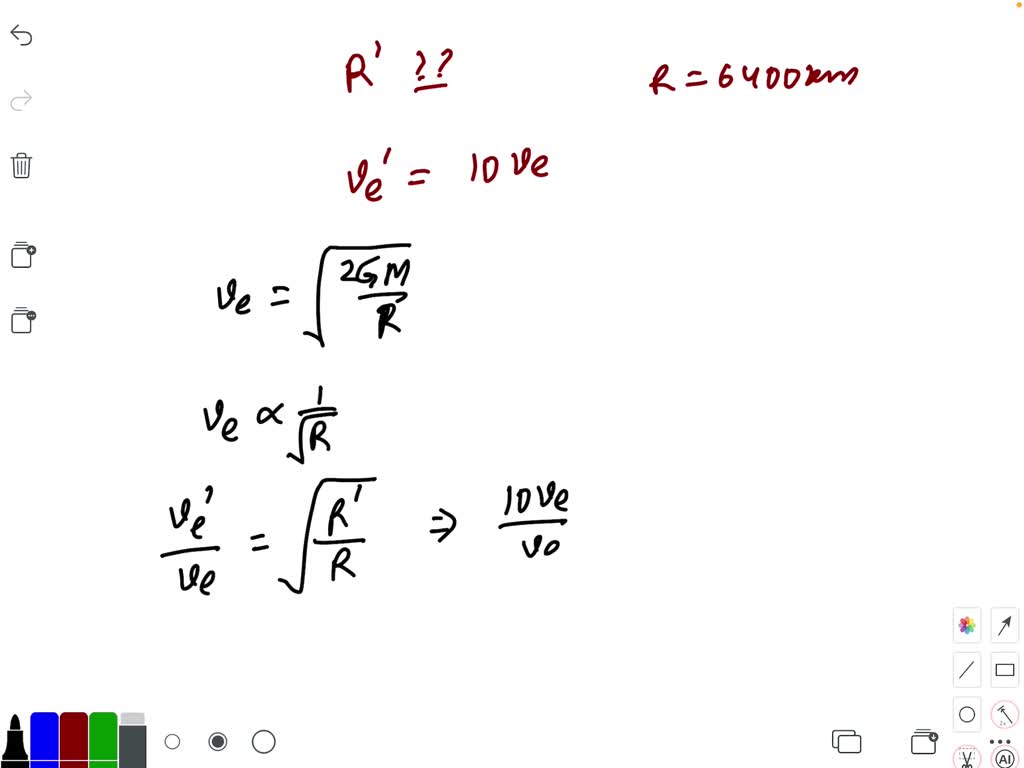 R' ?? R = 6400 km
ve' = 10 ve
ve = √(2GM/R)
ve ∝ 1/√R
ve'/ve = √(R'/R) ⇒ 10ve/ve
2x
AI